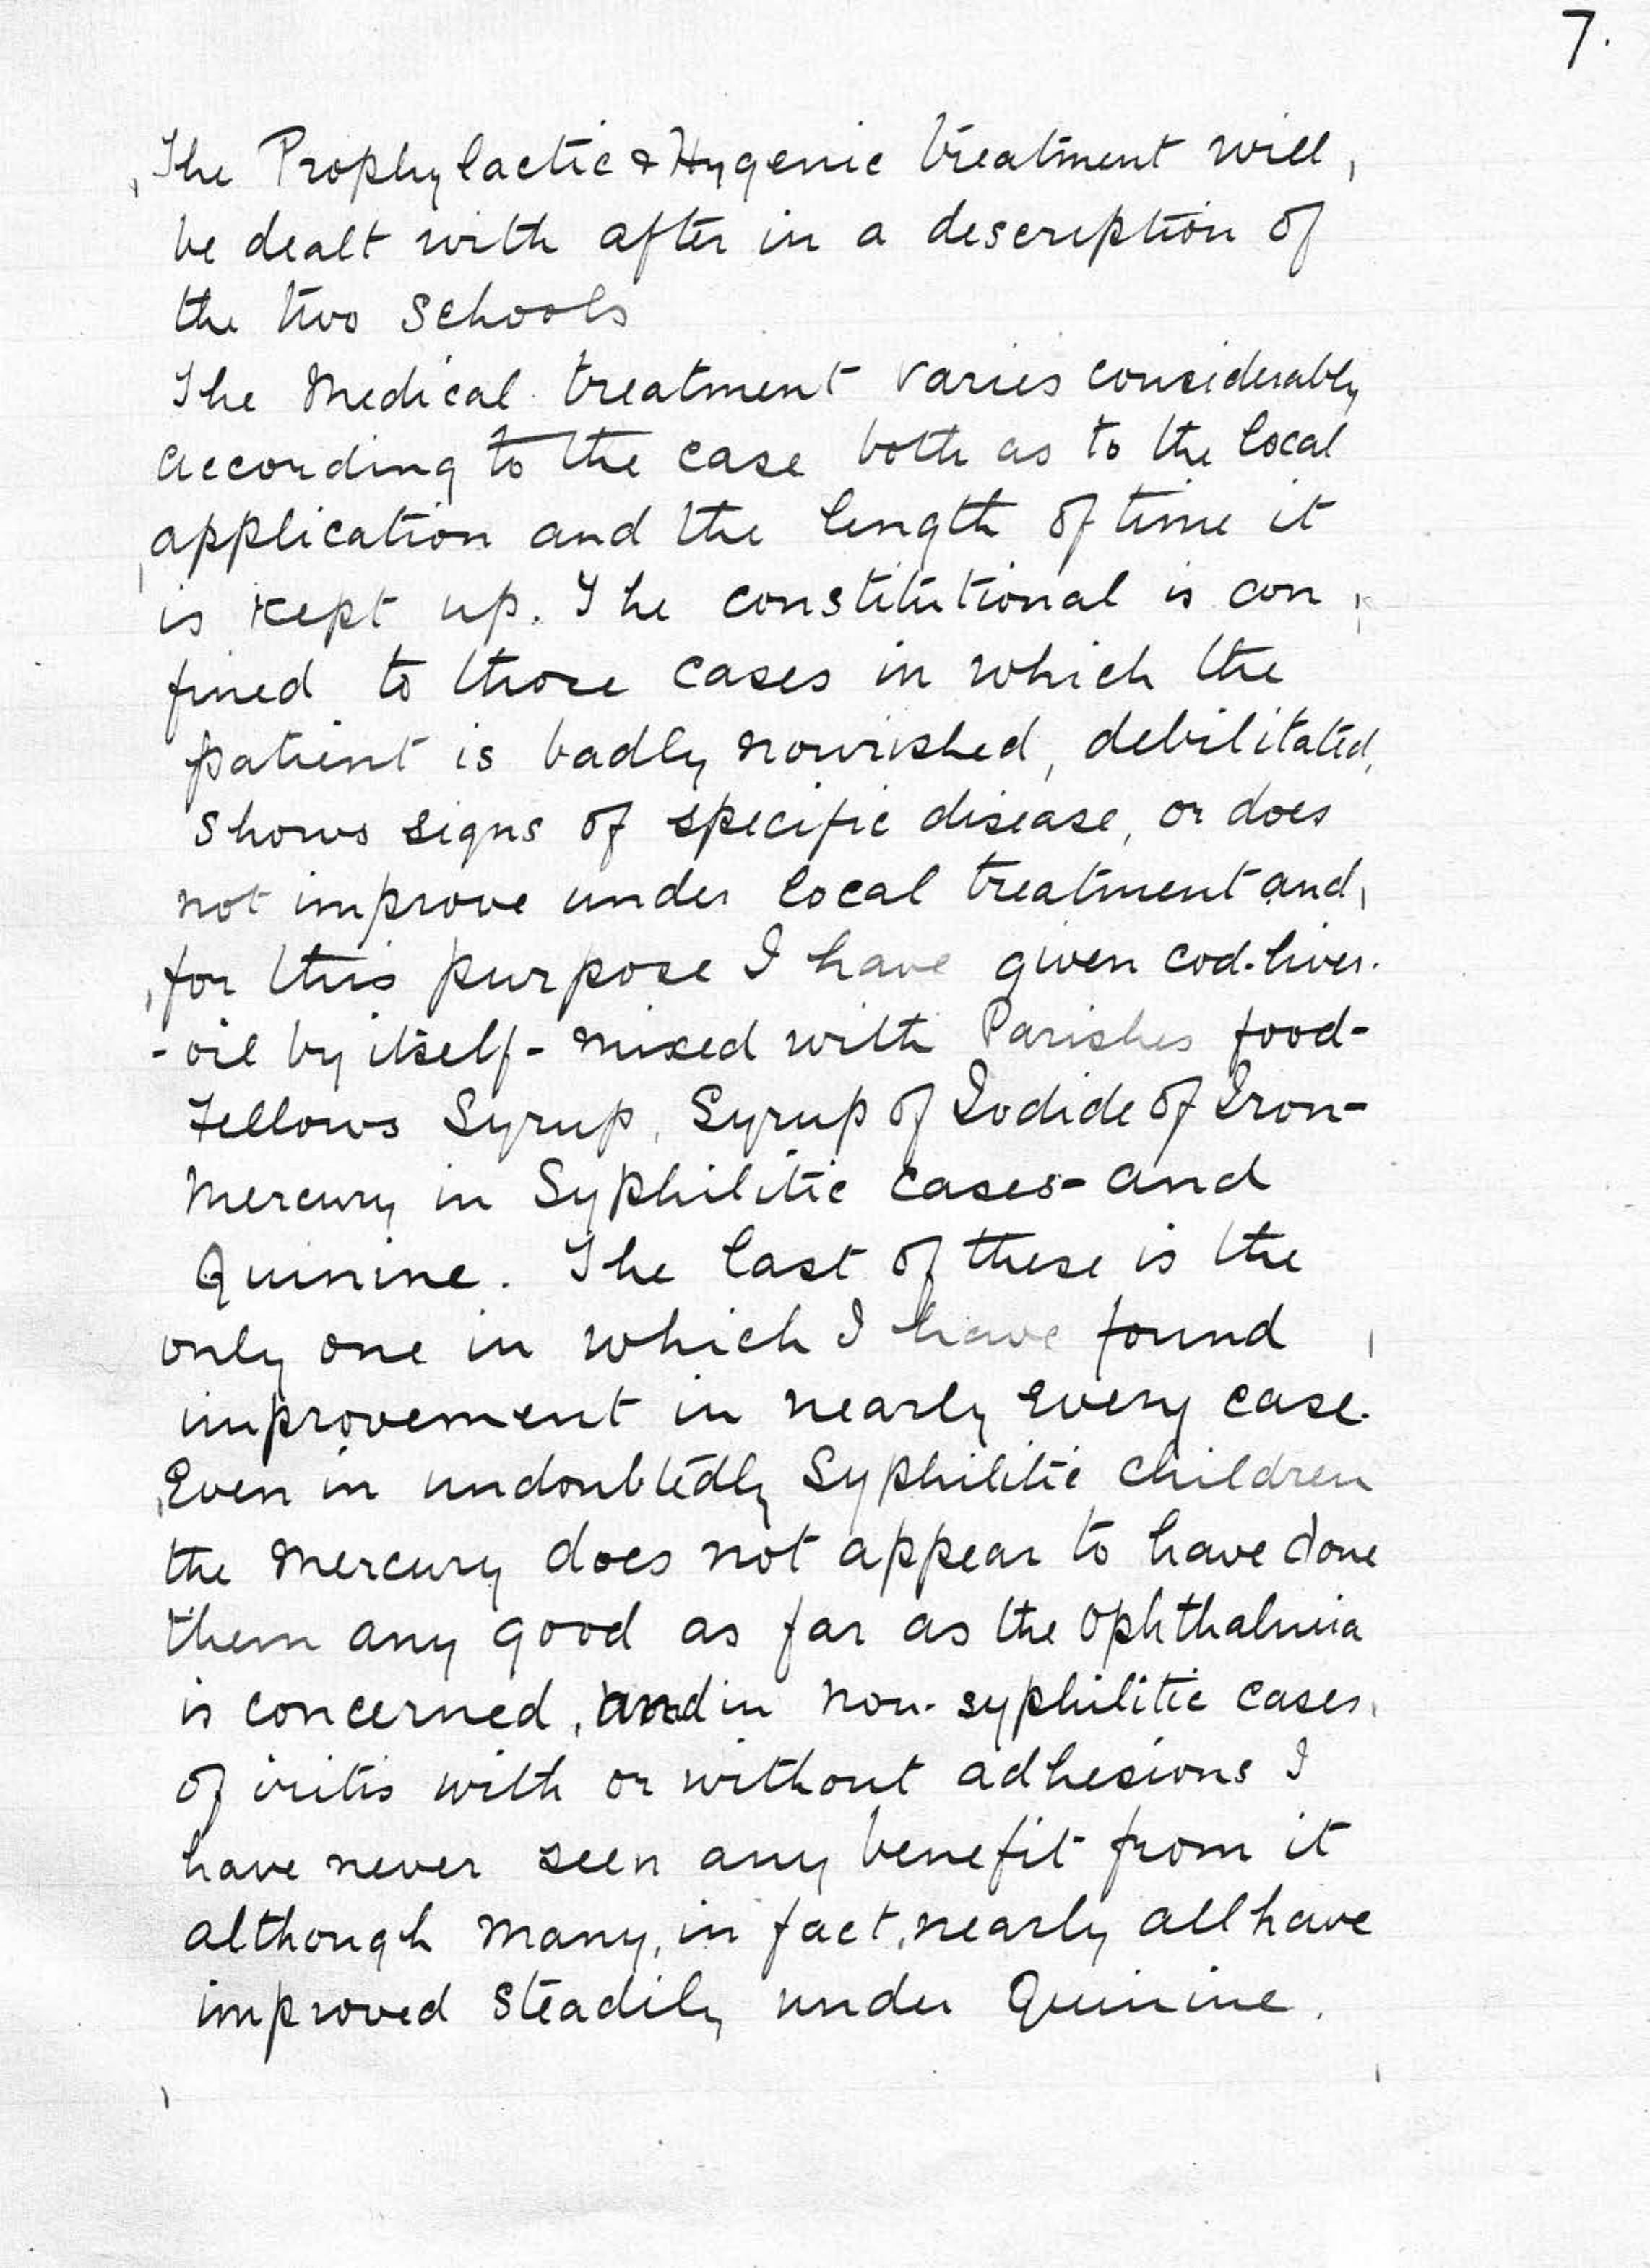 7.
The Prophylactic & Hygenic treatment will
be dealt with after in a description of
the two Schools
The Medical treatment varies considerably
according to the case both as to the local
application and the length of time it
is kept up. The constitutional is con
fined to those cases in which the
patient is badly nourished, debilitated,
shows signs of specific disease, or does
not improve under local treatment and
for this purpose I have given cod-liver-
-oil by itself - mixed with Parishes food-
Fellows Syrup, Syrup of Iodide of Iron-
Mercury in Syphilitic cases- and
Quinine. The last of these is the
only one in which I have found
improvement in nearly every case.
Even in undoubtedly Syphilitic children
the Mercury does not appear to have done
them any good as far as the Ophthalmia
is concerned, and in non-syphilitic cases
of iritis with or without adhesions I
have never seen any benefit from it
although many, in fact, nearly all have
improved steadily under Quinine.